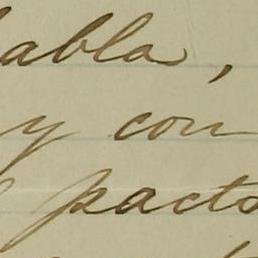 abla,
y con
pacto